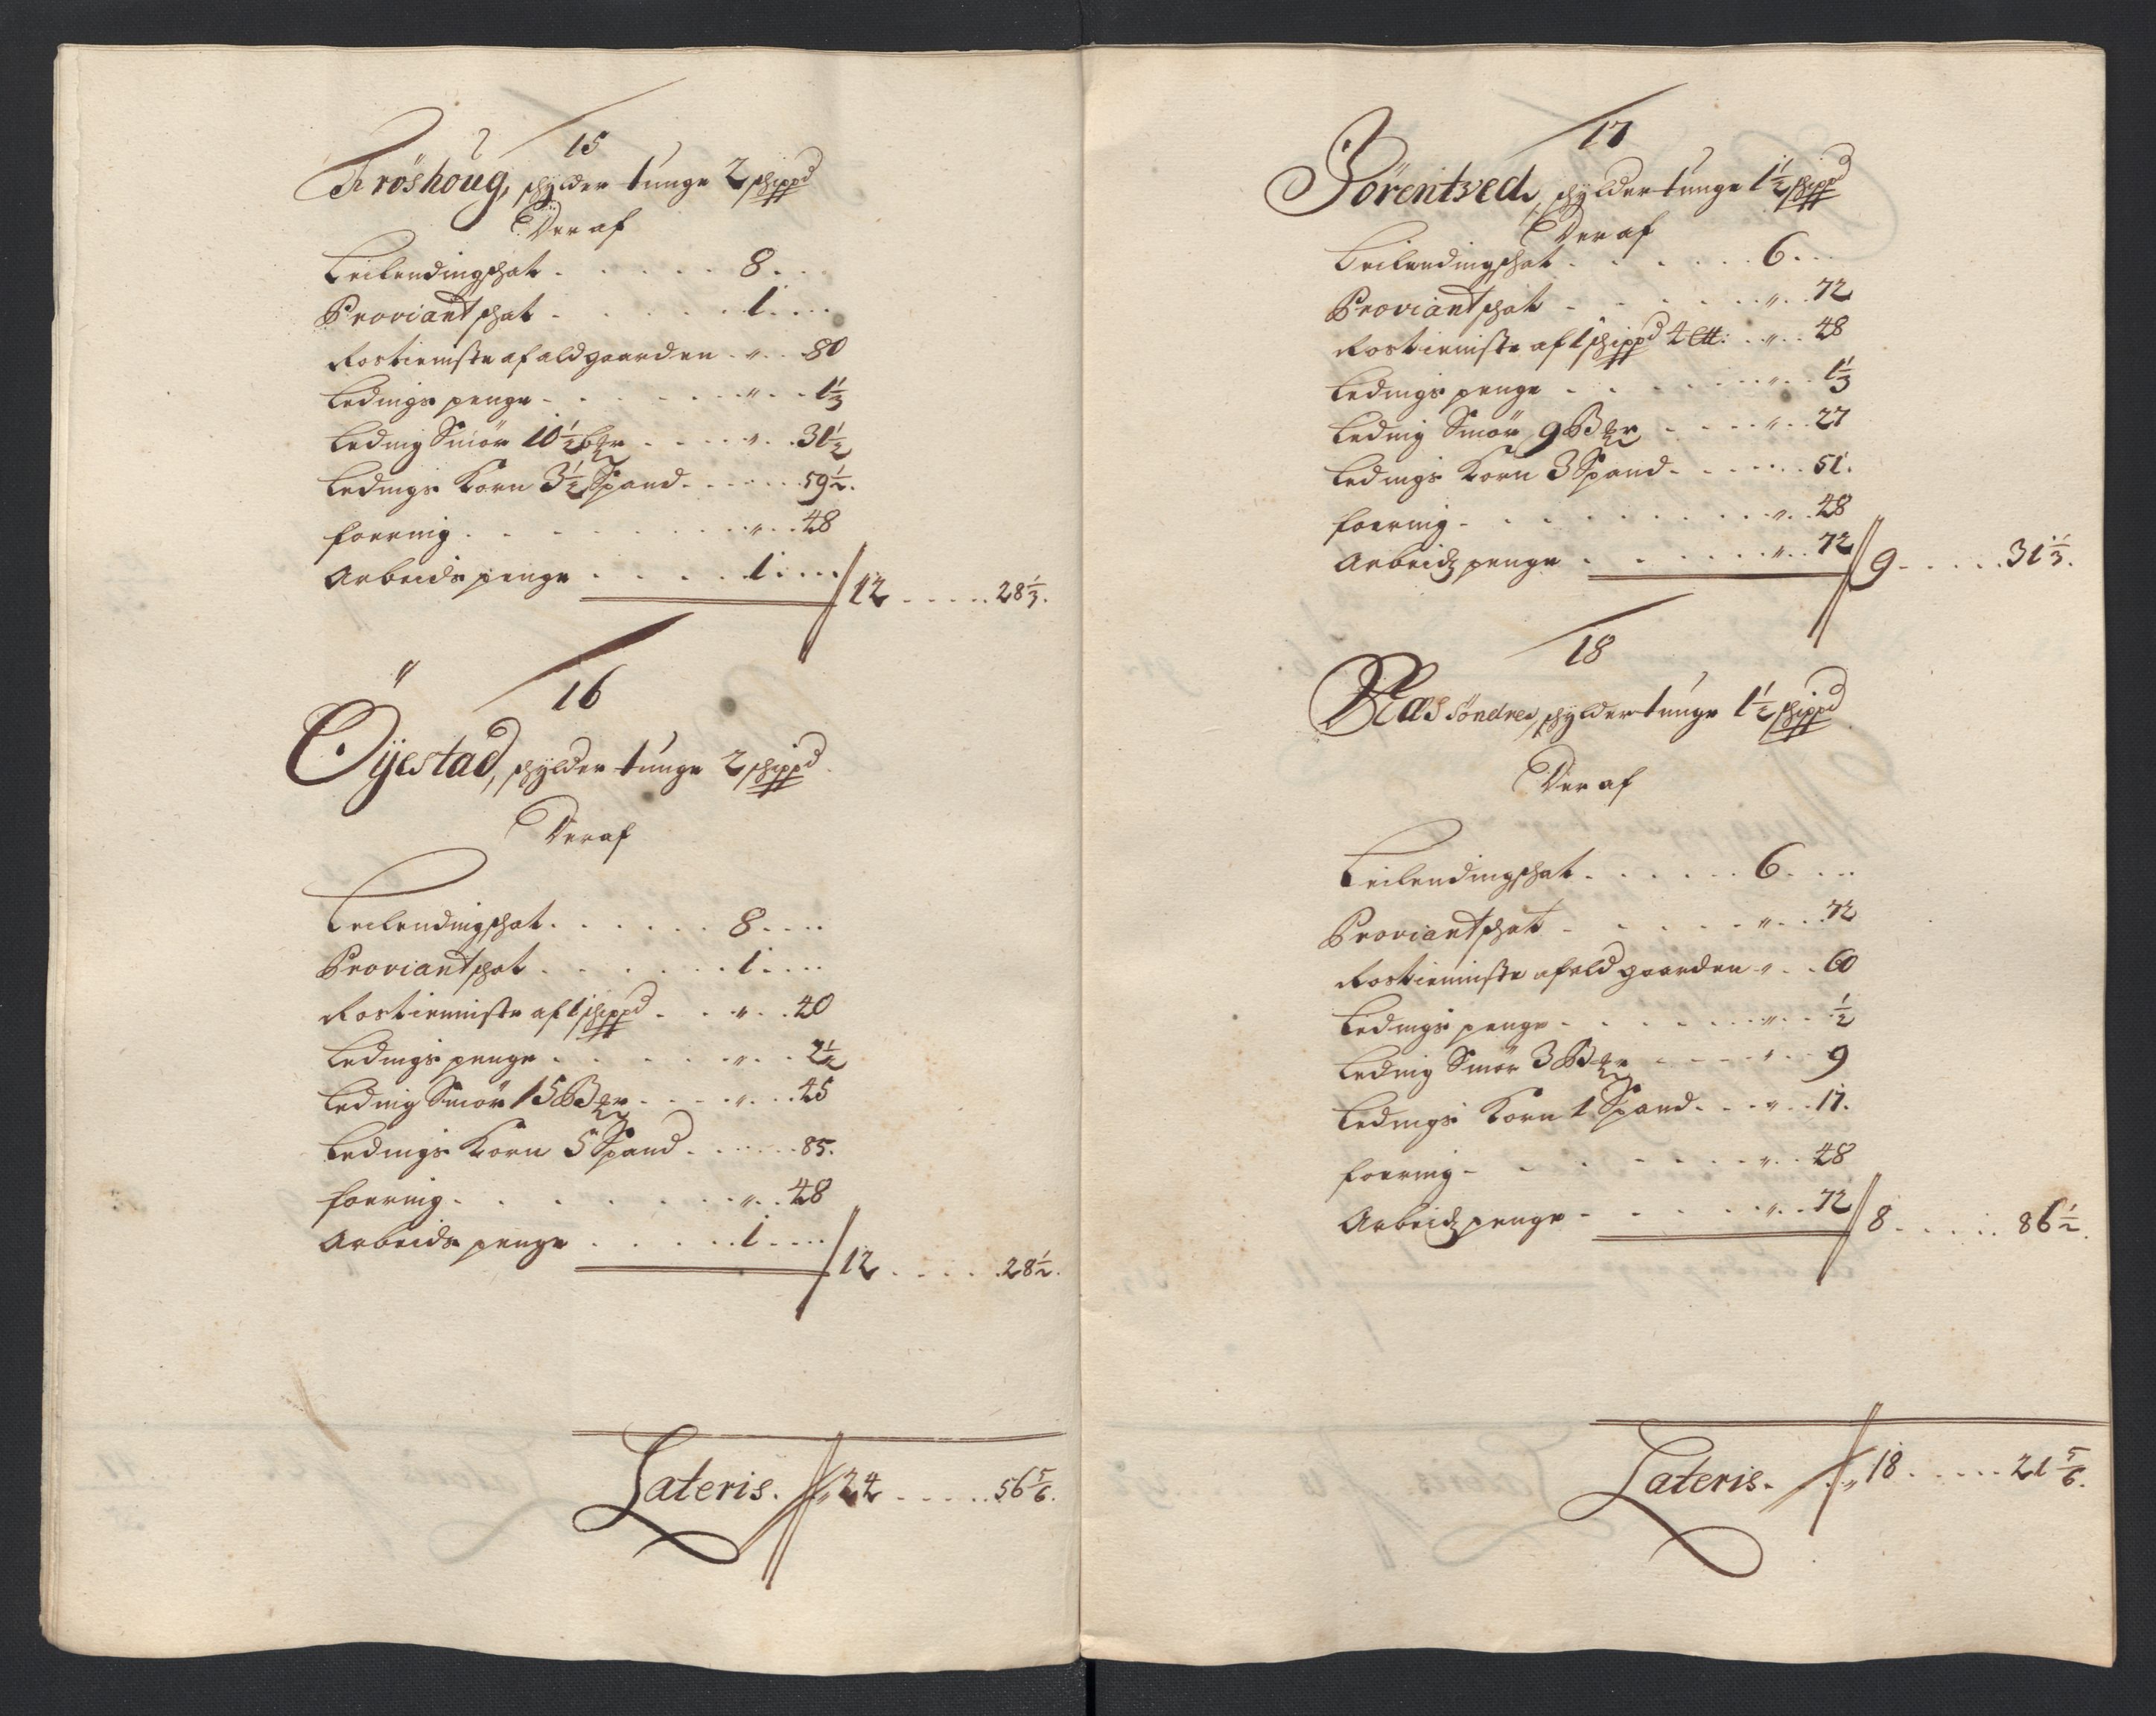 15
Fröshoug, schylder tunge 2 schippd
Der af
Leilendingschat . . . . . 8 . . .
Proviantschat . . . . . 1 . . .
Rostieniste af ald gaarden . " . . 80
Ledings penge . . . . . . " . . 1 1/3
Leding Smör 10 1/2 ber . . . . " . . 31 1/2
Ledings Korn 3 1/2 Spand . . . . . 59 1/2.
Foering . . . . . . . . " . . 48
Arbeids penge . . . . . 1 . . . 12 . . . . . 28 1/3.
16
Öyestad, schylder tunge 2 schippd
Der af
Leilendingschat . . . . . . 8 . . .
Proviantschat . . . . . . 1 . . .
Rostieniste af 1 schippd . . " . . 40
Ledings penge . . . . . " . . 2 1/2
Leding Smör 15 Ber . . . . " . . 45
Ledings Korn 5 Spand . . . . . 85.
Foering . . . . . . . " . . 48
Arbeids penge . . . . . 1 . . . 12 . . . . . 28 1/2.
Lateris. 24 . . . . . 56 5/6.
17
Törentved, schylder tunge 1 1/2 schippd
Der af
Leilendingschat . . . . . . 6 . . .
Proviantschat . . . . . . " . . 72
Rostieniste af 1 schippd 4 : . " . . 48
Ledings penge . . . . . . " . . 1 1/3
Leding Smör 9 Ber . . . . " . . 27
Ledings Korn 3 Spand . . . . . 51.
Foering . . . . . . . . " . . 48
Arbeids penge . . . . . " . . 72 9 . . . . . 31 1/3.
18
Næs söndre, schylder tunge 1 1/2 schippd
Der af
Leilendingschat . . . . . . 6 . . .
Proviantschat . . . . . " . . 72
Rostieniste af ald gaarden . " . . 60
Ledings penge . . . . . . " . . 1/2
Leding Smör 3 Ber . . . . " . . 9
Ledings Korn 1 Spand . . . " . . 17.
Foering . . . . . . . " . . 48
Arbeids penge . . . . . " . . 72 8 . . . . . 86 1/2.
Lateris. 18 . . . . . 21 5/6.